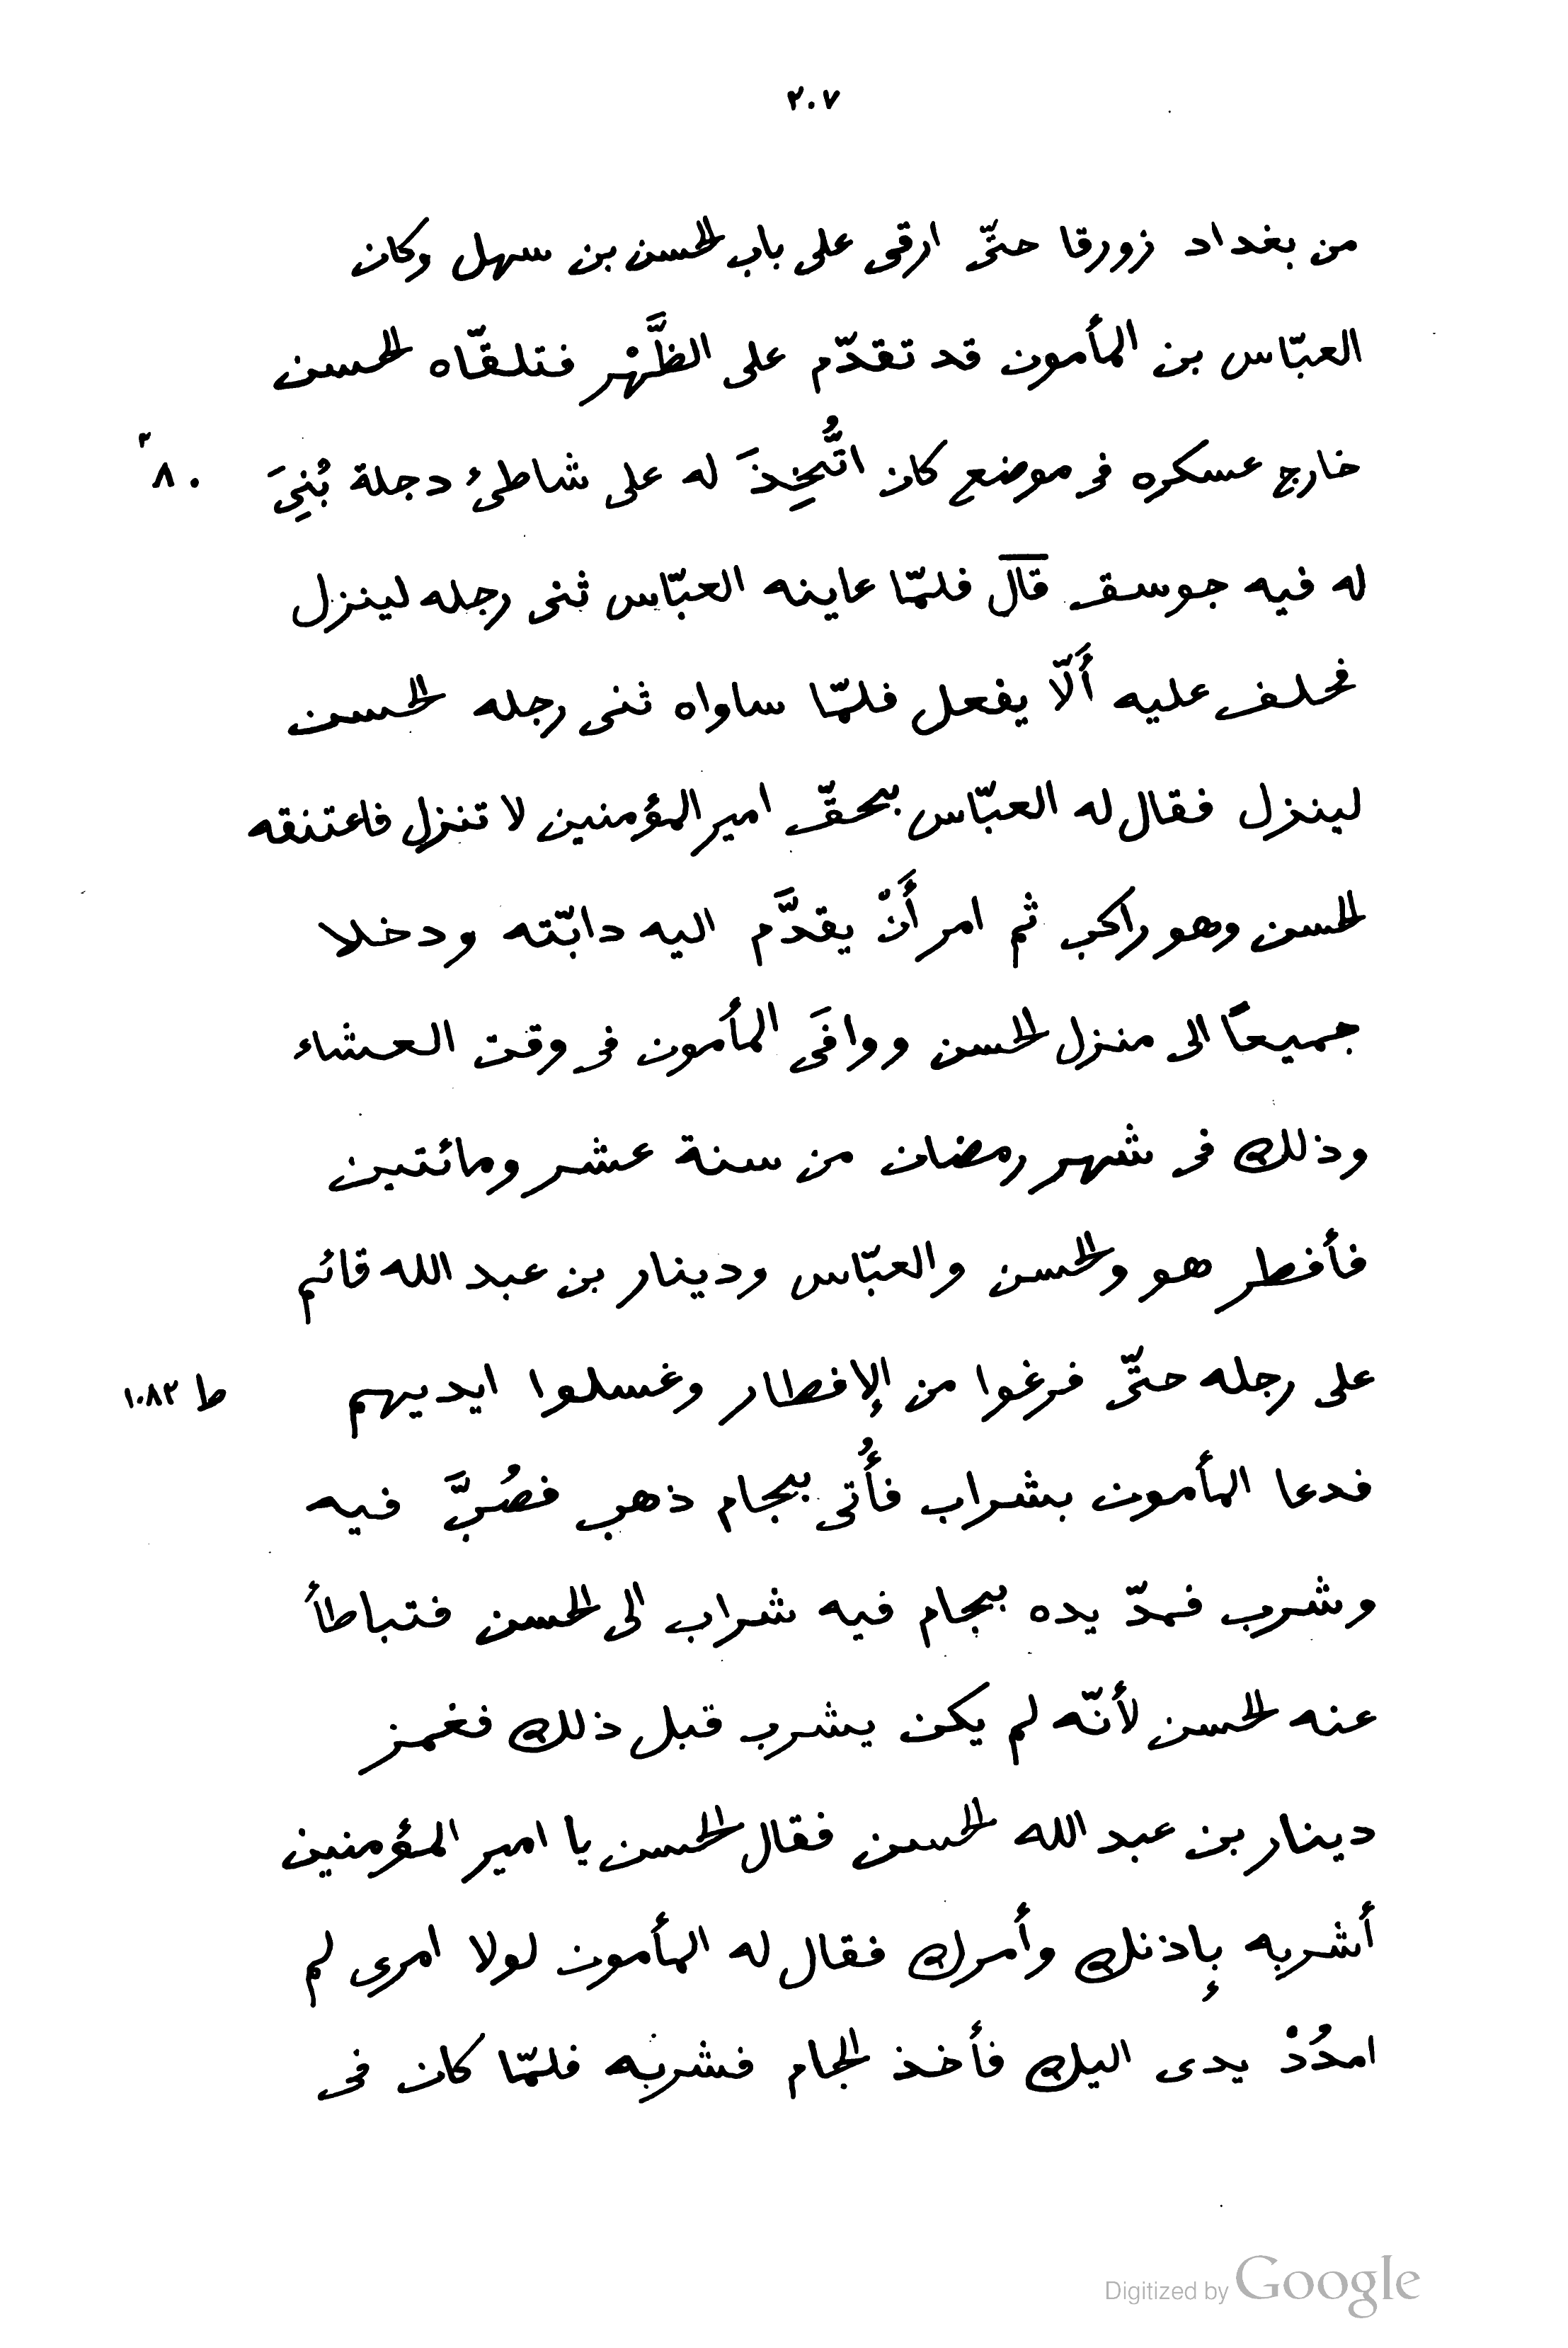 ٢٠٧
من بغداد زورقا حتّى ارقى على باب الحسن بن سهل وكان
العبّاس بن المأمون قد تقدّم على الظَّهْر فتلقّاه الحسن
خارج عسكره فى موضع كان اتُّخِذَ له على شاطئ دجلة بُنِىَ
٨٠
له فيه جوسق قال فلمّا عاينه العبّاس ثنى رجله لينزل
فحلف عليه أَلّا يفعل فلمّا ساواه ثنى رجله الحسن
لينزل فقال له العبّاس بحقّ امير المؤمنين لا تنزل فاعتنقه
الحسن وهو راكب ثم امر أَنْ يقدَّم اليه دابّته ودخلا
جميعًا الى منزل الحسن ووافَى المأمون فى وقت العشاء
وذلك فى شهر رمضان من سنة عشر ومائتين
فأفطر هو والحسن والعبّاس ودينار بن عبد الله قائم
على رجله حتّى فرغوا من الإفطار وغسلوا ايديهم
ط ١٠٨٣
فدعا المأمون بشراب فأُتى بجام ذهب فصُبَّ فيه
وشرب فمدّ يده بجام فيه شراب الى الحسن فتباطأ
عنه الحسن لأنّه لم يكن يشرب قبل ذلك فغمز
دينار بن عبد الله الحسن فقال الحسن يا امير المؤمنين
أشربه بإذنك وأمرك فقال له المأمون لولا امرى لم
امدُدْ يدى اليك فأخذ الجام فشربه فلمّا كان فى
Digitized by Google